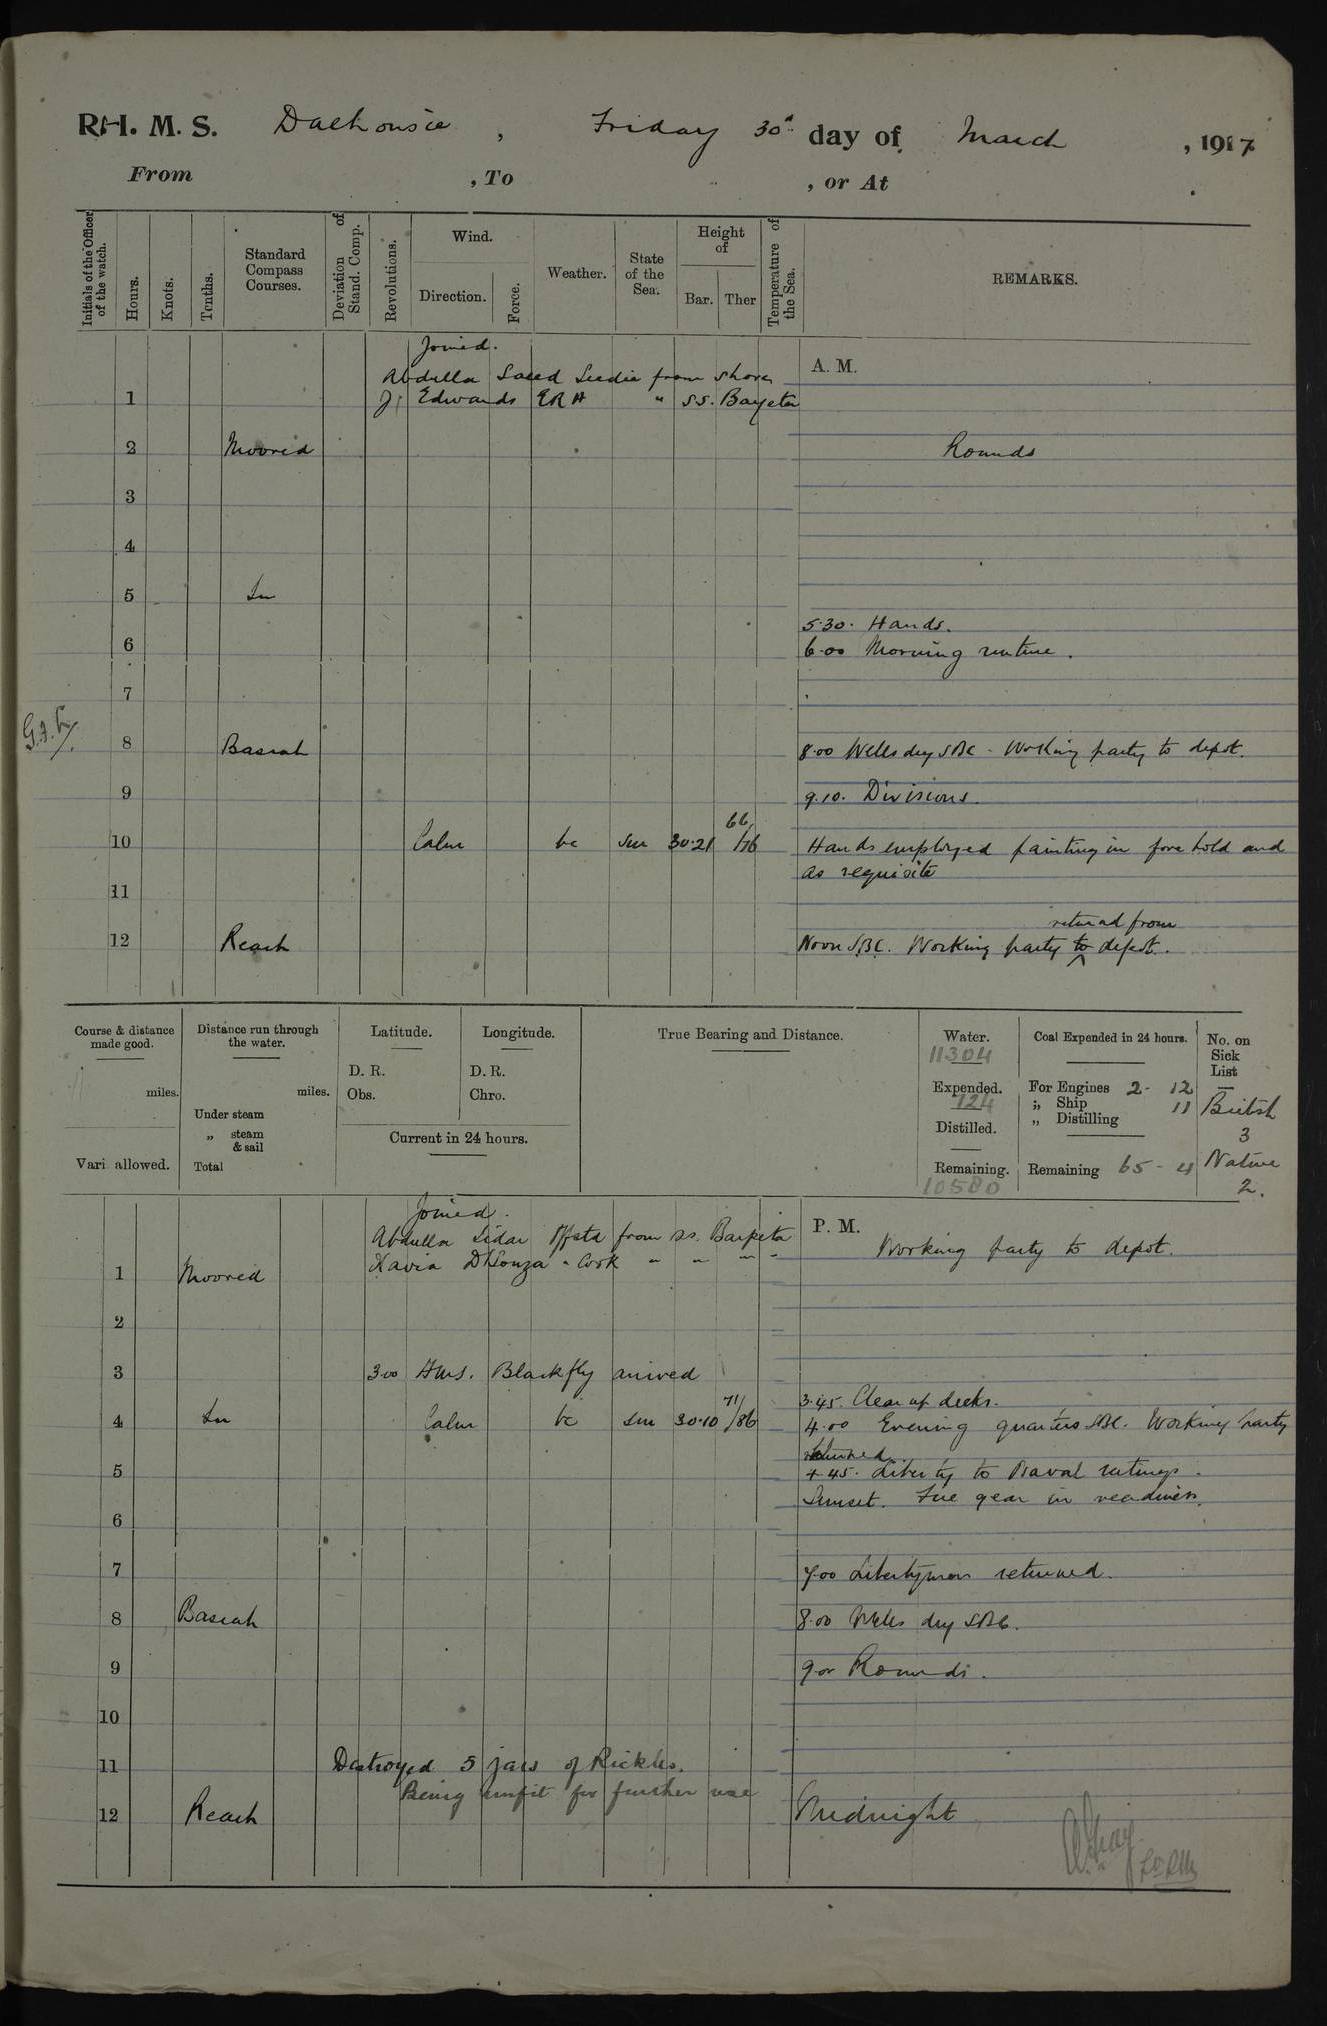 R.I. M. S. Dalhousie, Friday 30th day of March, 1917
From , To , or At
Initials of the Officer of the watch.
Hours.
Knots.
Tenths.
Standard Compass Courses.
Deviation of Stand. Comp.
Revolutions.
Wind.
Direction.
Force.
Weather.
State of the Sea.
Height of
Bar. Ther
Temperature of the Sea.
REMARKS.
Joined.
A. M.
Abdulla Saeed Seedie from shore
1 J. Edwards ERA " SS.
2 Moored Rounds
3
4
5 In
5.30. Hands.
6 6.00 Morning routine.
7
8 Basrah 8.00 Wells dry SBC. Working party to depot.
9 9.10. Divisions.
66
10 Calm bc Sm 30.21 /76 Hands employed painting in fore hold and
as requisite
11
returned from
12 Reach Noon SBC. Working party to depot.
Course & distance made good.
miles.
Vari allowed.
Distance run through the water.
miles.
Under steam
„ steam & sail
Total
Latitude.
D. R.
Obs.
Longitude.
D. R.
Chro.
Current in 24 hours.
True Bearing and Distance.
Water.
11304
Expended.
124
Distilled.
Remaining.
10580
Coal Expended in 24 hours.
For Engines 2 - 12
„ Ship 11
„ Distilling
Remaining 65 - 4
No. on Sick List
British
3
Native
2.
Joined.
P. M.
Abdulla Sidar from ss. Barpeta
Working party to depot.
Xavia D'Souza " Cook " " " "
1 Moored
2
3 3.00 HMS. Blackfly arrived
3.45. Clear up decks.
71
4 In Calm bc Sm 30.10 /86 4.00 Evening quarters SBC. Working party
returned
5 4.45. Liberty to Naval ratings.
Sunset. Fire gear in readiness.
6
7 7.00 Libertymen returned.
8 Basrah 8.00 Wells dry SBC.
9 9.00 Rounds.
10
11 Destroyed 5 jars of Pickles.
Being unfit for further use
12 Reach Midnight